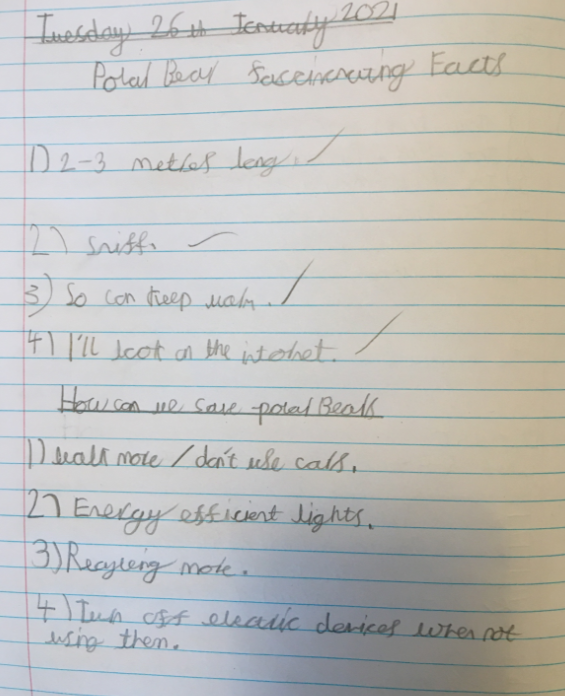 Tuesday 26th January 2021
Polar Bear fascinating Facts
1) 2-3 metres long.
2) sniff.
3) So can keep warm.
4) I'll look on the internet.
How can we save polar Bears
1) walk more / don't use cars.
2) Energy efficient lights.
3) Recycling more.
4) Turn off electric devices when not
using them.